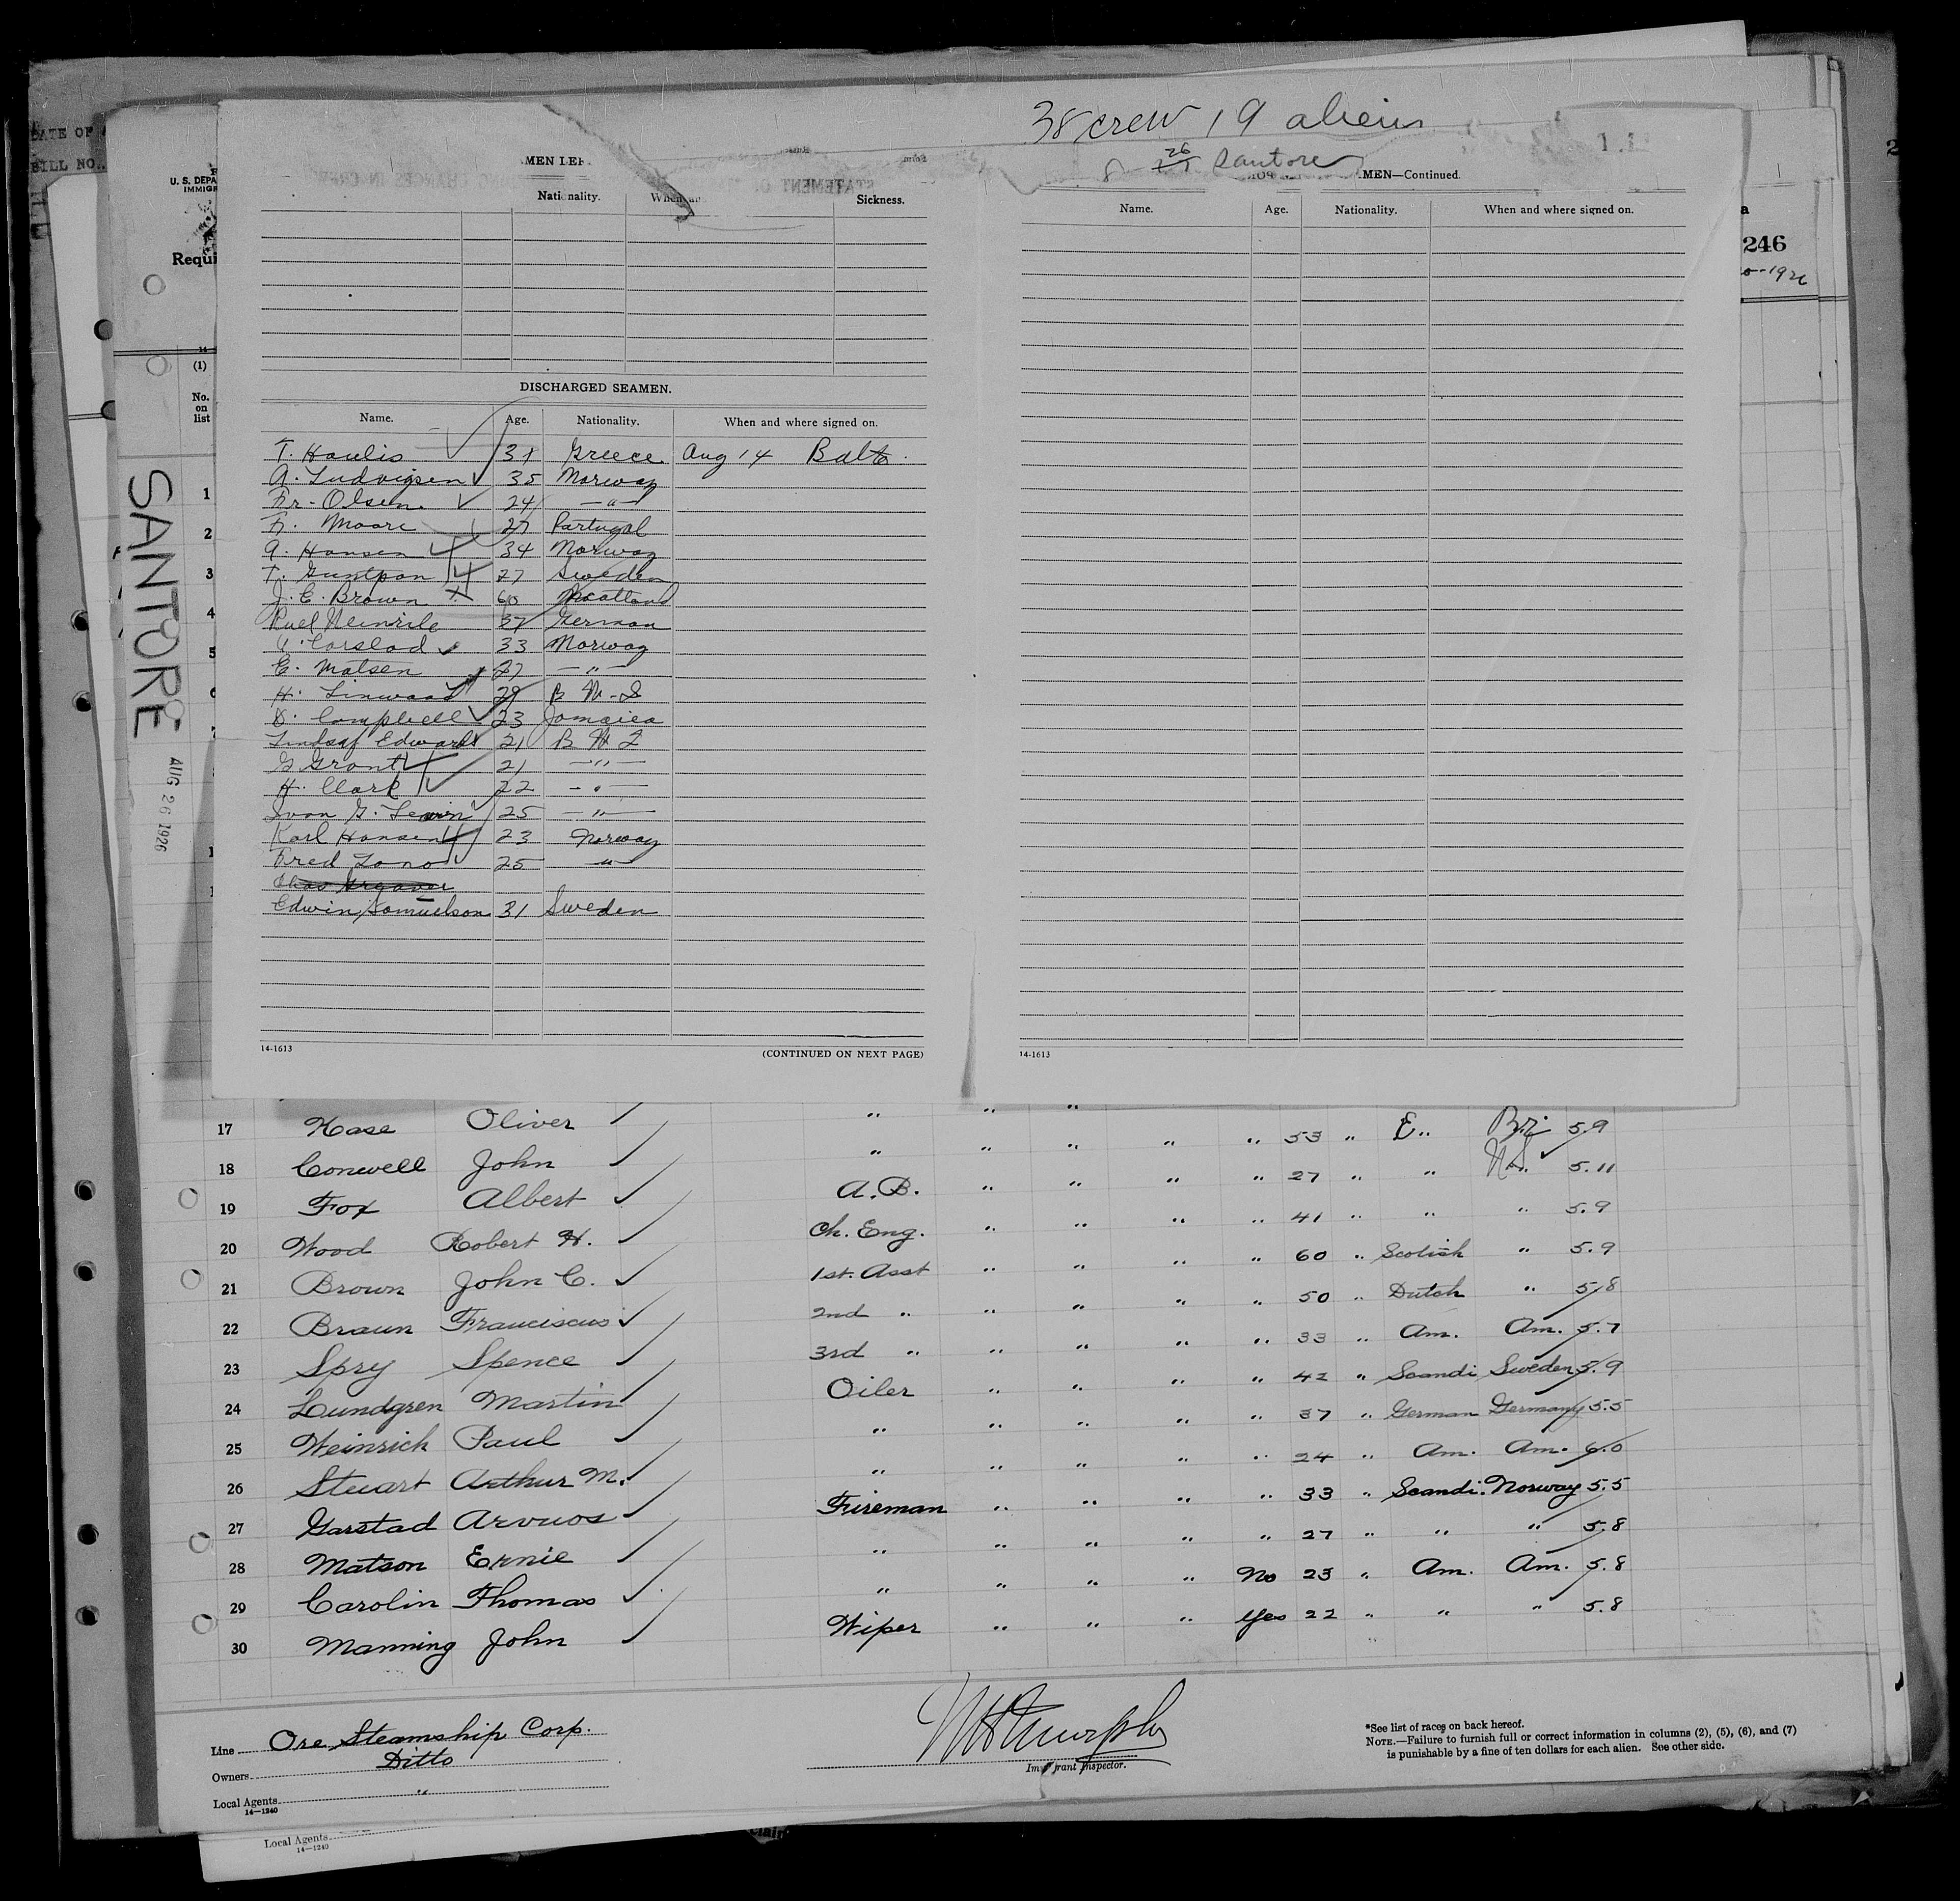 38 crew 19 aliens
8 26 Santore
DATE OF
BILL NO.
U. S. DEPA
IMMIGR
Requi
MEN LEF
STATEMENT OF
CHANGES IN CREW
Nationality. When an Sickness.
MEN—Continued.
Name. Age. Nationality. When and where signed on.
246
1926
14
(1)
No.
on
list
DISCHARGED SEAMEN.
Name. Age. Nationality. When and where signed on.
T. Haulis 31 Greece Aug 14 Balto.
A. Ludvigsen 35 Norway
Fr. Olsen 24 — " —
F. Moore 27 Partugal
A. Hansen 34 Norway
T. Guntpon 27 Sweden
J. C. Brown 60 Scotland
Puel Weinrile 37 German
Carslad 33 Norway
E. Matsen 27 — " —
H. Linwood 29 B W-I
D. Campbell 23 Jamaica
Lindsay Edwards 21 B W I
G. Grant 21 — " —
H. Clark 22 — " —
Ivan G. 25 — " —
Karl Hansen 23 Norway
Fred Lono 25 "
Chas
Edwin Samuelson 31 Sweden
14-1613 (CONTINUED ON NEXT PAGE)
14-1613
SANTORE
AUG 26 1926
1
2
3
4
5
6
7
17 Hase Oliver " " " " " 53 " E " Br. 5.9
18 Conwell John " " " " " 27 " " 5.11
19 Fox Albert A.B. " " " " 41 " " " 5.9
20 Wood Robert H. Ch. Eng. " " " " 60 " Scotish " 5.9
21 Brown John C. 1st. Asst " " " " 50 " Dutch " 5/8
22 Braun Franciscus 2nd " " " " " 33 " Am. Am. 5.7
23 Spry Spence 3rd " " " " " 42 " Scandi Sweden 5.9
24 Lundgren Martin Oiler " " " " 37 " German Germany 5.5
25 Weinrich Paul " " " " " 24 " Am. Am. 6.0
26 Stuart Arthur M. " " " " " 33 " Scandi. Norway 5.5
27 Garstad Arvuos Fireman " " " " 27 " " " 5.8
28 Matson Ernie " " " " No 23 " Am. Am. 5.8
29 Carolin Thomas " " " " Yes 22 " " " 5.8
30 Manning John Wiper " " "
Line Ore Steamship Corp.
Owners Ditto
Local Agents "
14—1240
Immigrant Inspector.
*See list of races on back hereof.
NOTE.—Failure to furnish full or correct information in columns (2), (5), (6), and (7)
is punishable by a fine of ten dollars for each alien. See other side.
Local Agents
14—1240